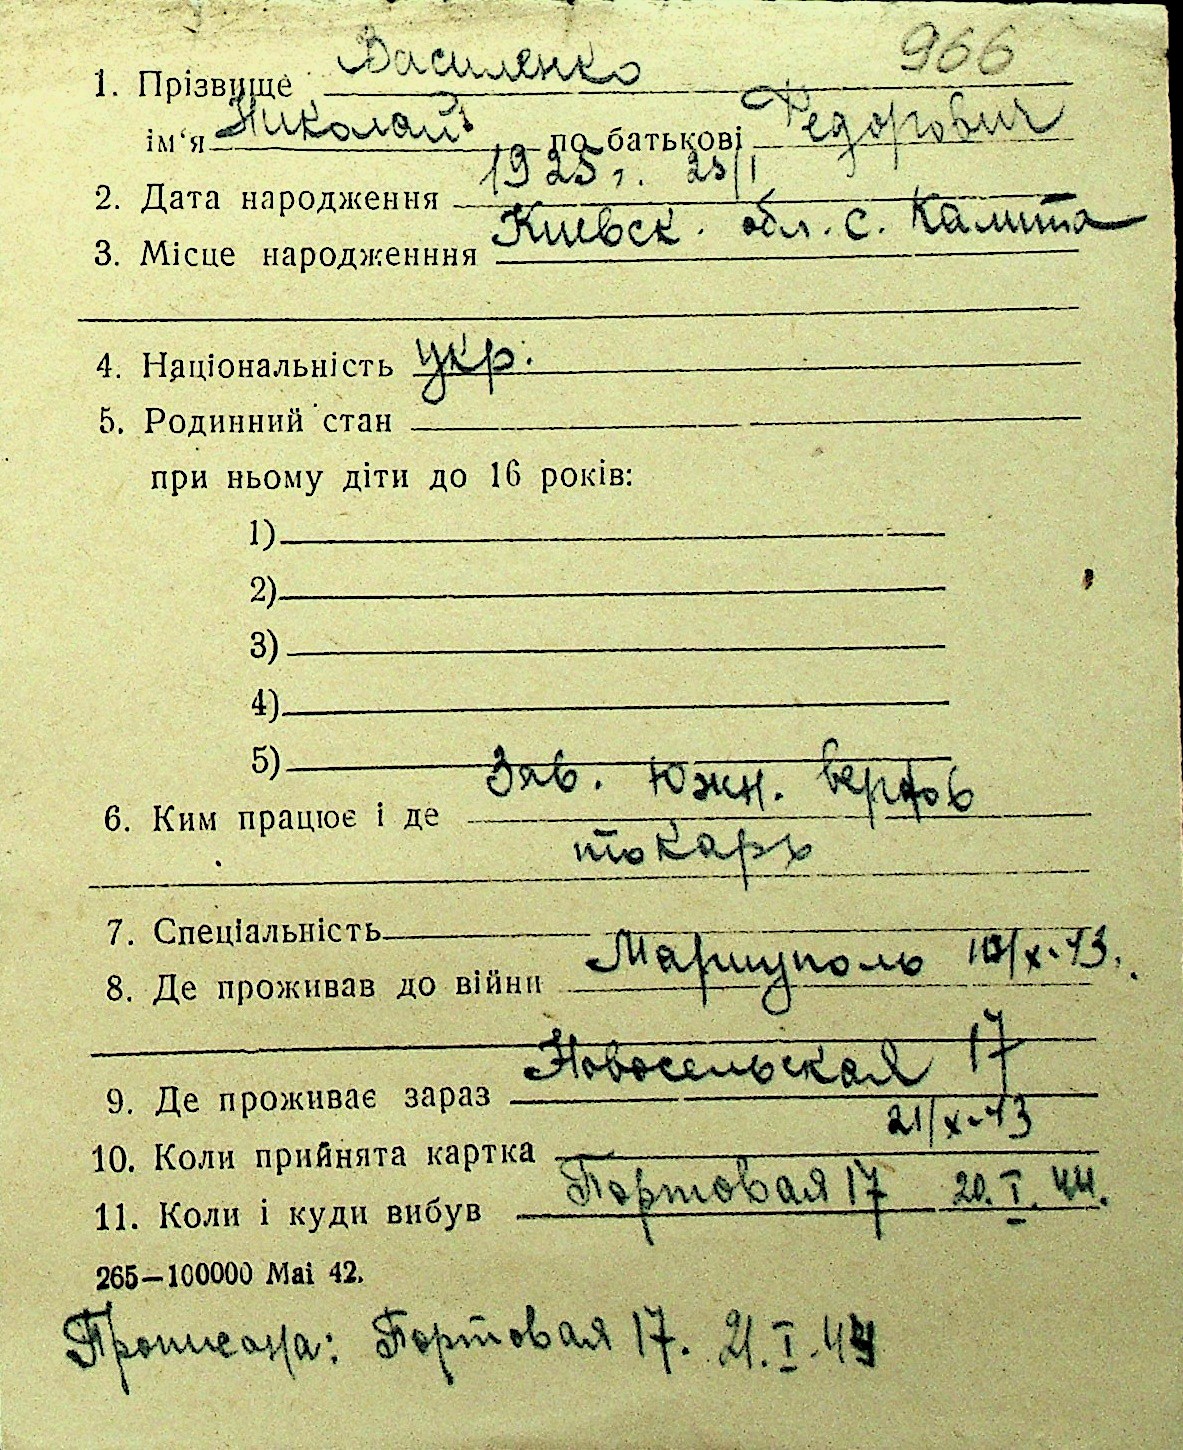 966
1. Прізвище Василенко
ім'я Николай по батькові Федорович
2. Дата народження 1925 г. 25/I
3. Місце народженння Киевск. обл. с. Калита
4. Національність укр.
5. Родинний стан
при ньому діти до 16 років:
1)
2)
3)
4)
5)
6. Ким працює і де Зав. Южн. верфов
токарь
7. Спеціальність
8. Де проживав до війни Мариуполь /X-43.
9. Де проживає зараз Новосельская 17
10. Коли прийнята картка 21/X-43
11. Коли і куди вибув Портовая 17 20.I.44.
265—100000 Mai 42.
Прописана: Портовая 17. 21.I.44